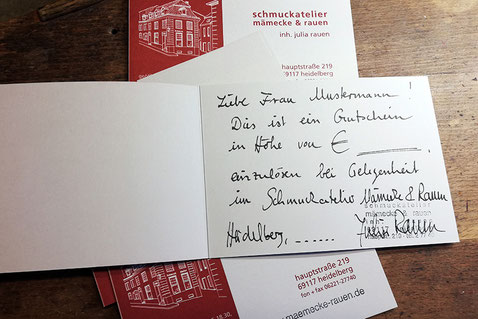 schmuckatelier
mämecke & rauen
inh. julia rauen
hauptstraße 219
69117 heidelberg
Liebe Frau Mustermann!
Das ist ein Gutschein
in Höhe von €
einzulösen bei Gelegenheit
im Schmuckatelio Mämecke & Rauen
schmuckatelier
mämecke & rauen
Heidelberg, ......
Rauen
hauptstraße 219
69117 heidelberg
fon + fax 06221-27740
maemecke-rauen.de